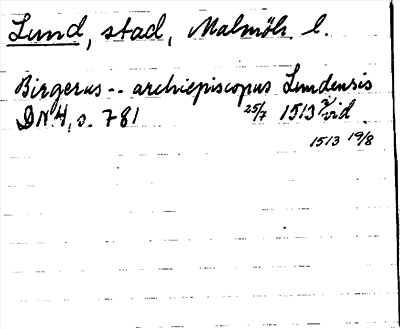 Lund, stad, Malmöh. l.
Birgerus -- archiepiscopus Lundensis
DN 4, s. 781 25/7 1513 vid.
1513 19/8